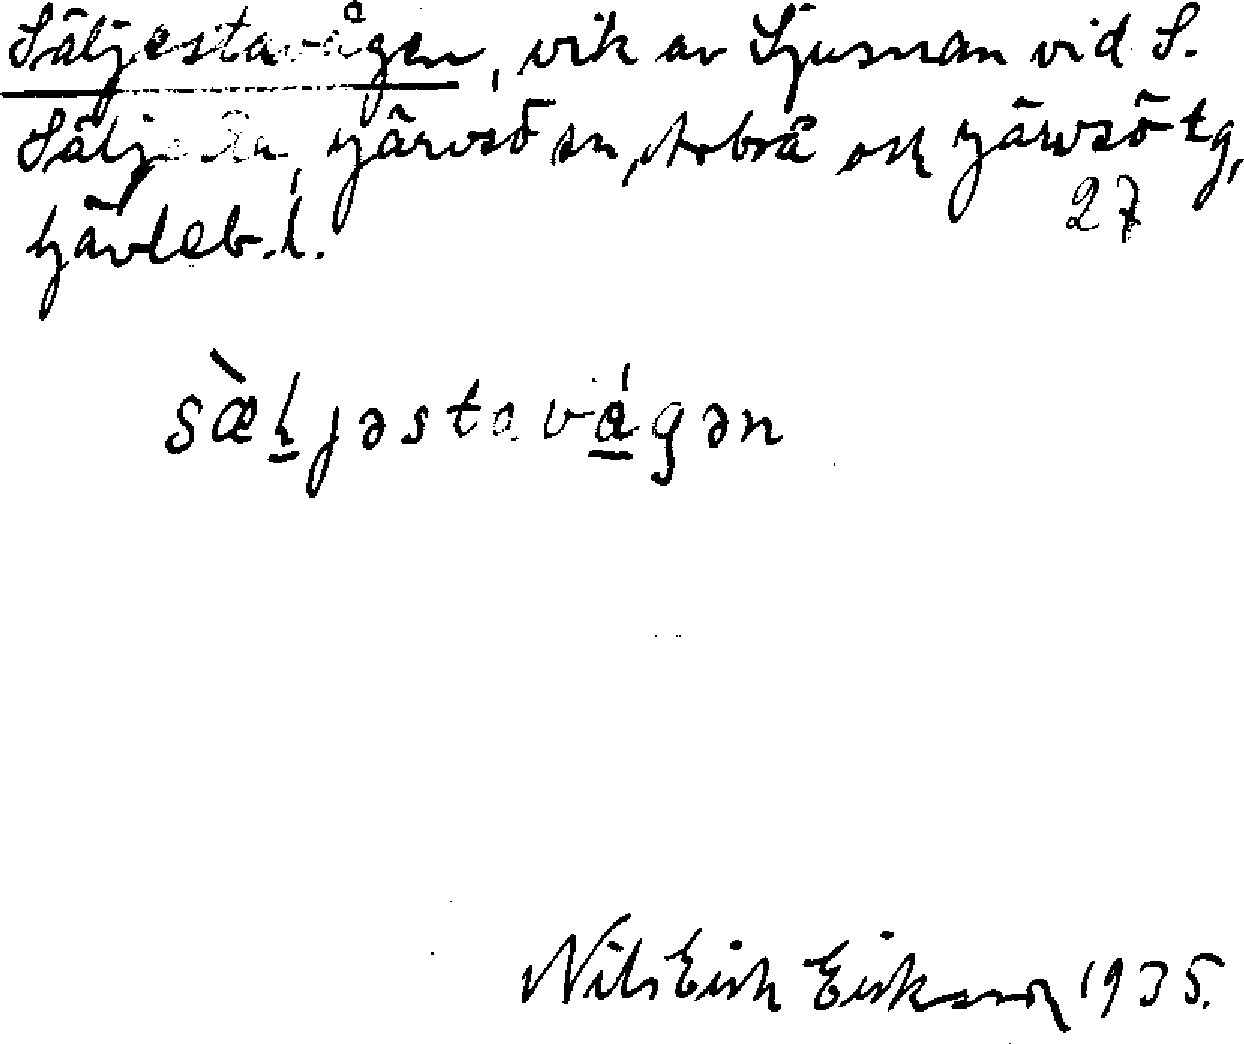 Säljestavågen, vik av Ljusnan vid S.
Säljesta, Järvsö sn, Arbrå och Järvsö tg,
Gävleb. l.
27
sæ̀ḻjəstavá̱gən
Nils Erik Eriksson 1935.